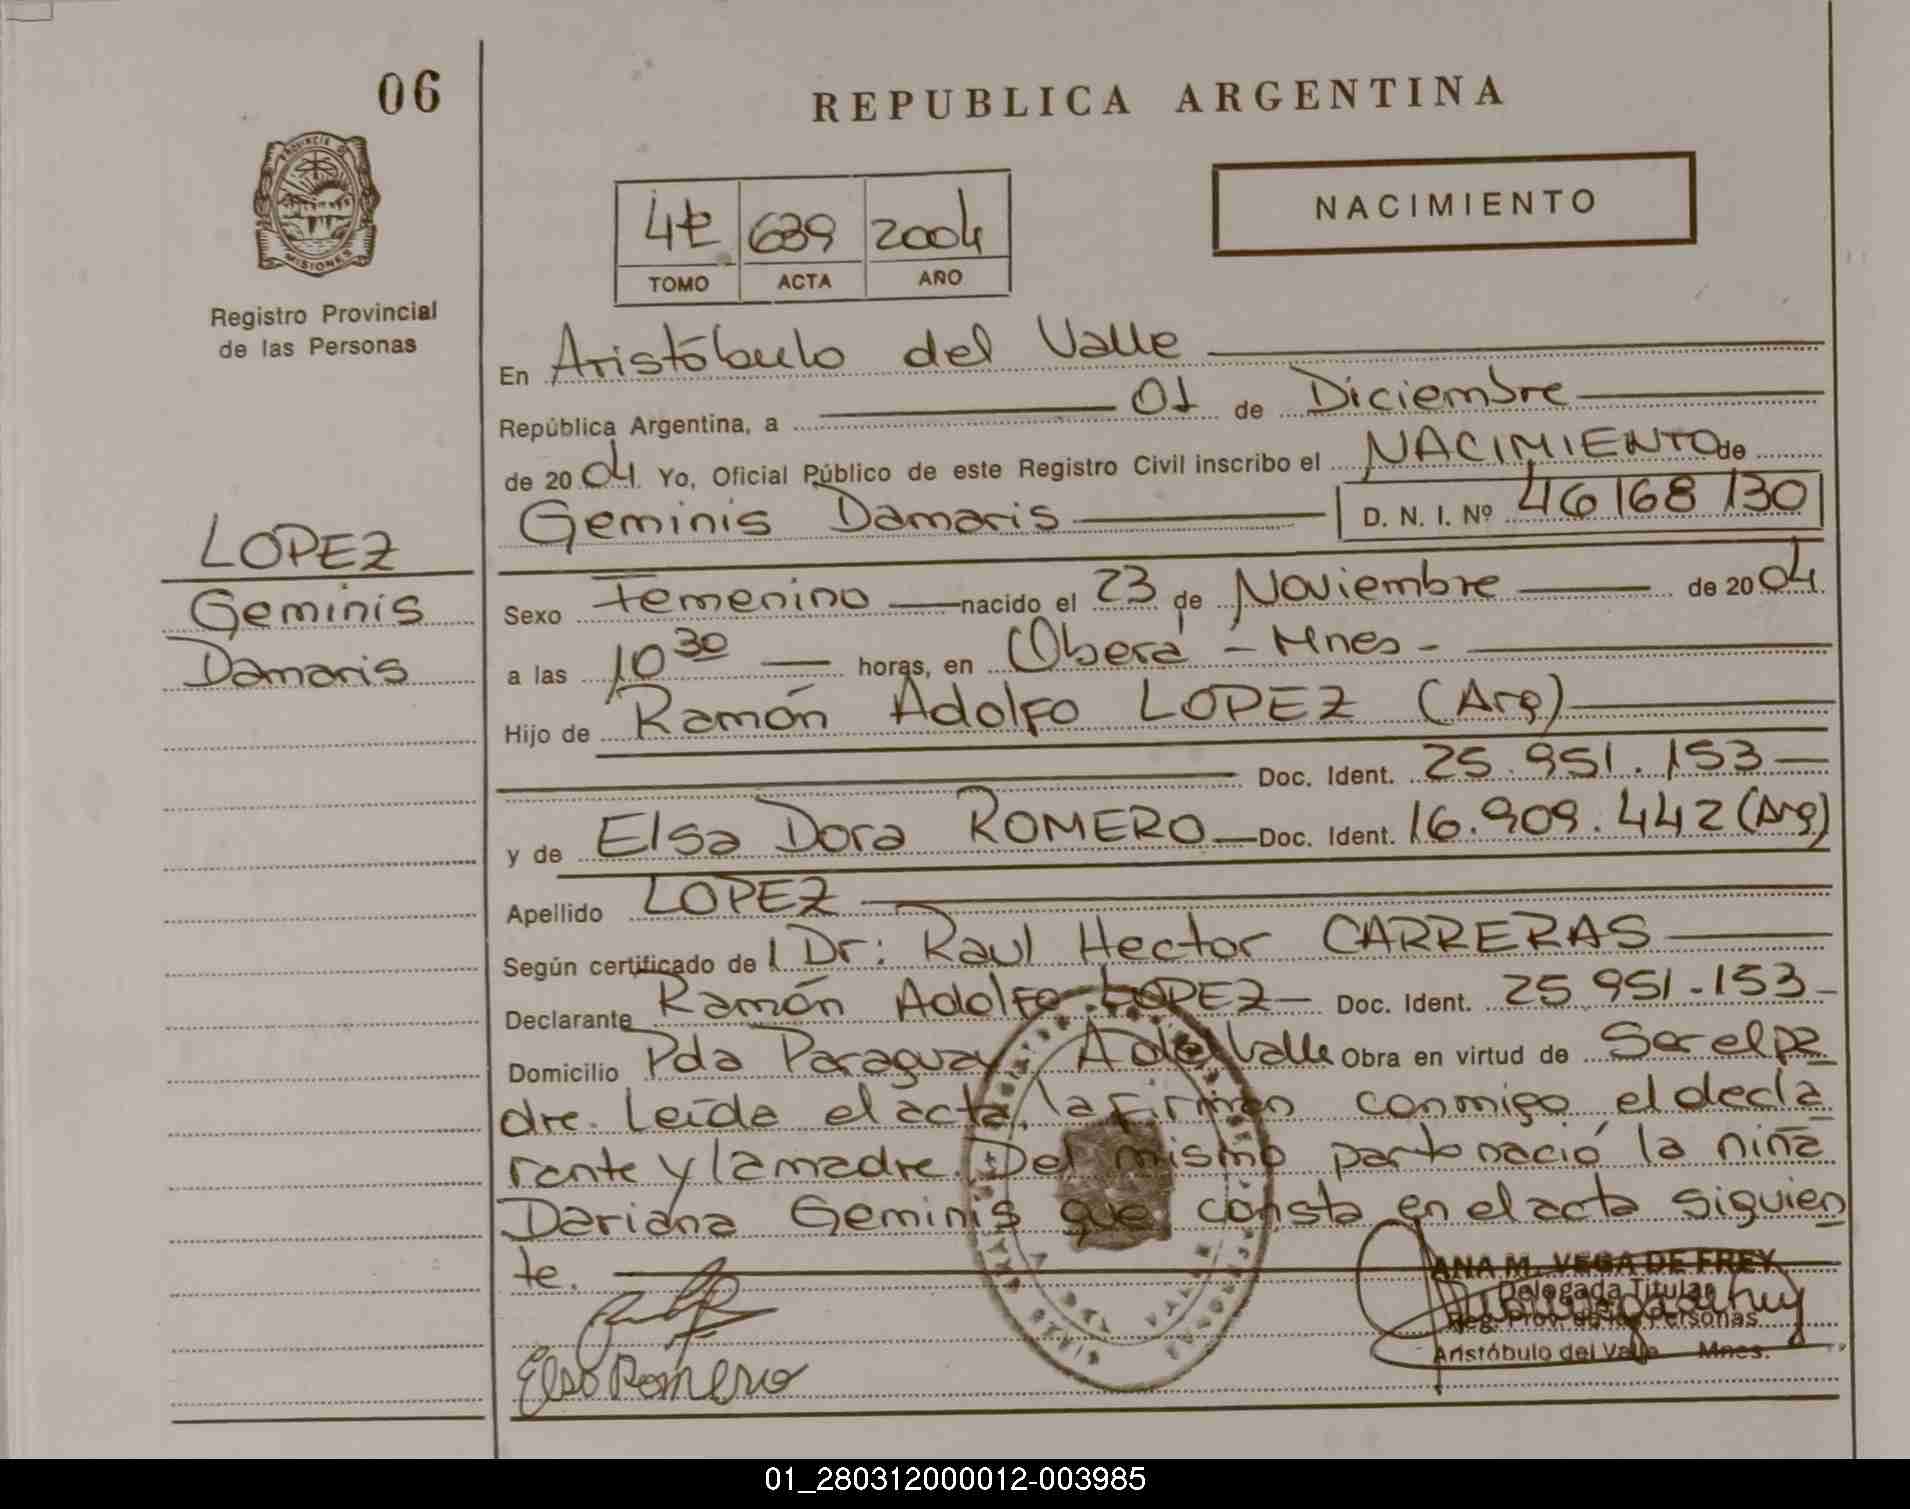 06
REPUBLICA ARGENTINA
PROVINCIA DE
MISIONES
Registro Provincial
de las Personas
4t 639 2004
TOMO ACTA AÑO
NACIMIENTO
En Aristóbulo del Valle
República Argentina, a 01 de Diciembre
de 2004 Yo, Oficial Público de este Registro Civil inscribo el NACIMIENTO de
Geminis Damaris D. N. I. Nº 46168130
LOPEZ
Geminis
Damaris
Sexo Femenino nacido el 23 de Noviembre de 2004
a las 10 30 horas, en Oberá - Mnes -
Hijo de Ramón Adolfo LOPEZ (Arg)
Doc. Ident. 25.951.153
y de Elsa Dora ROMERO Doc. Ident. 16.909.442 (Arg)
Apellido LOPEZ
Según certificado de l Dr: Raul Hector CARRERAS
Declarante Ramón Adolfo LOPEZ Doc. Ident. 25 951.153
Domicilio Pda Paraguay A del Valle Obra en virtud de Ser el pa
dre. Leída el acta, la firman conmigo el decla
rante y la madre. Del mismo parto nació la niña
Dariana Geminis que consta en el acta siguien
te.
ANA M. VEGA DE FREY
Delegada Titular
Reg. Prov. de las Personas
Aristóbulo del Valle Mnes.
Elsa Romero
01_280312000012-003985